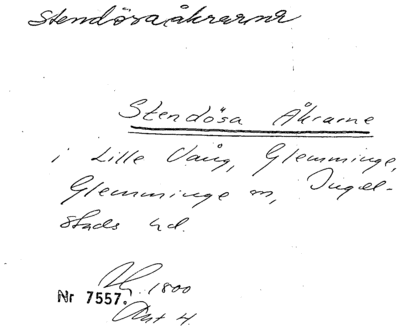 Stendösaåkrarna
Stendösa Åkrarne
i Lille Vång, Glemminge,
Glemminge sn, Ingel-
stads hd.
1800
Nr 7557.
Akt 4.